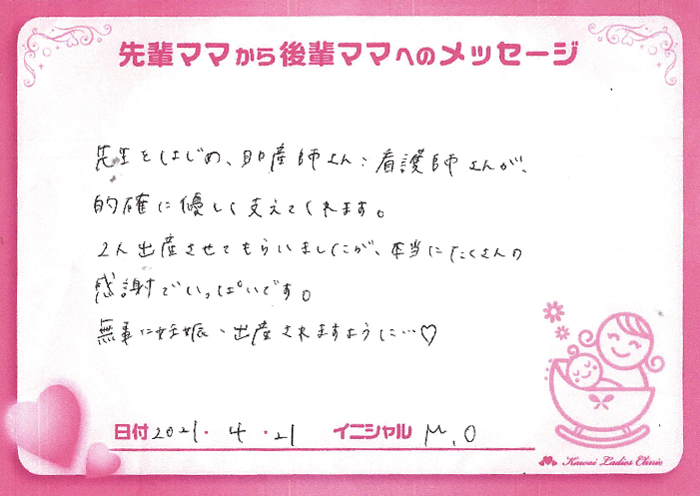 先輩ママから後輩ママへのメッセージ
先生をはじめ、助産師さん、看護師さんが、
的確に優しく支えてくれます。
2人出産させてもらいましたが、本当にたくさんの
感謝でいっぱいです。
無事に妊娠・出産されますように…♡
日付 2021. 4 .21 イニシャル M.O
Kawai Ladies Clinic